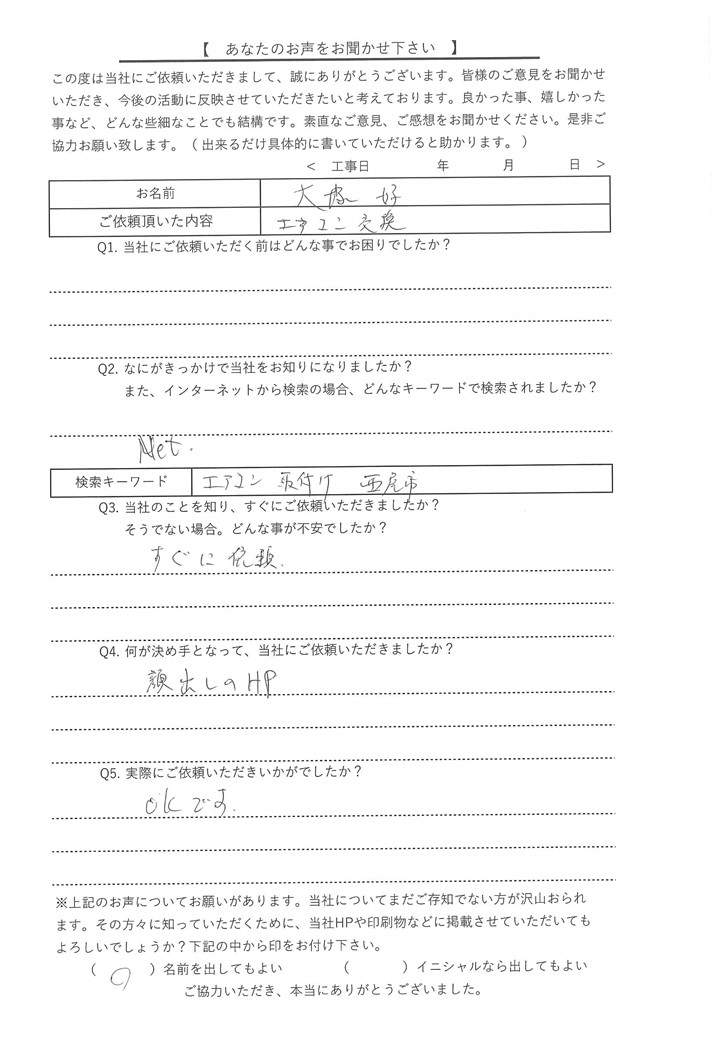 【 あなたのお声をお聞かせ下さい 】
この度は当社にご依頼いただきまして、誠にありがとうございます。皆様のご意見をお聞かせ
いただき、今後の活動に反映させていただきたいと考えております。良かった事、嬉しかった
事など、どんな些細なことでも結構です。素直なご意見、ご感想をお聞かせください。是非ご
協力お願い致します。（ 出来るだけ具体的に書いていただけると助かります。）
＜ 工事日 年 月 日 ＞
お名前 大 好
ご依頼頂いた内容 エアコン交換
Q1. 当社にご依頼いただく前はどんな事でお困りでしたか？
Q2. なにがきっかけで当社をお知りになりましたか？
また、インターネットから検索の場合、どんなキーワードで検索されましたか？
Net.
検索キーワード エアコン 取付け 西尾市
Q3. 当社のことを知り、すぐにご依頼いただきましたか？
そうでない場合。どんな事が不安でしたか？
すぐに依頼.
Q4. 何が決め手となって、当社にご依頼いただきましたか？
顔出しのHP
Q5. 実際にご依頼いただきいかがでしたか？
OKです.
※上記のお声についてお願いがあります。当社についてまだご存知でない方が沢山おられ
ます。その方々に知っていただくために、当社HPや印刷物などに掲載させていただいても
よろしいでしょうか？下記の中から印をお付け下さい。
（ ○ ）名前を出してもよい （ ）イニシャルなら出してもよい
ご協力いただき、本当にありがとうございました。